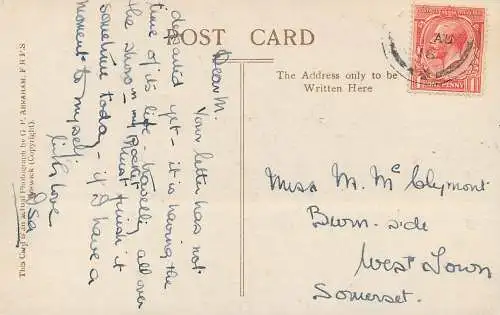 POST CARD
Dear M.
Your letter has not
departed yet - it is having the
time of its life - travelling all over
the shows in my Pocket
Must finish it
sometime today - if I have a
moment to myself.
Isa
This Card is an actual Photograph by G. P. Abraham, F.R.P.S.
Keswick (Copyright).
The Address only to be
Written Here
Miss M. Mc Clymont
Burn-side
West Town
Somerset.
ONE PENNY
AU
16